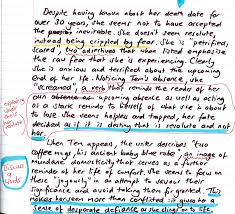 Despite having known about her death date for
over 30 years, she seems not to have accepted
the inevitable. She doesn't seem resolute,
instead being crippled by fear. She is "petrified,
scared", two adjectives that when listed emphasise
the raw fear that she is experiencing. Clearly
she is anxious and terrified about the upcoming
end of her life. Noticing Tem's absence, she
"screamed", a verb that reminds the reader of her
upcoming absence as well as acting
as a stark reminder to herself of what she is about
to lose. She seems helpless and trapped, her fate
decided as if it is destiny that is resolute and not
her.
When Tem appeared, the writer describes "two
coffee mugs, his ancient baby blue robe", an image of
mundane domesticity that serves as a further
reminder of her life of comfort. She seems to focus
on their "", in an attempt to savour their
significance and avoid taking them for granted. This
makes her seem more than conflicted: it gives her a
sense of desperate defiance as she clings on to life.
Discuss
words